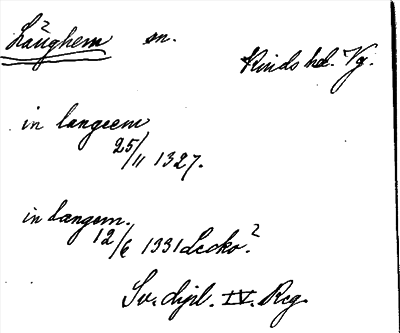 Länghem sn.
Kinds hd. Vg.
in langeem
25/11 1327.
in længem.
12/6 1331 Lecko.2
Sv. dipl. IV. Reg.